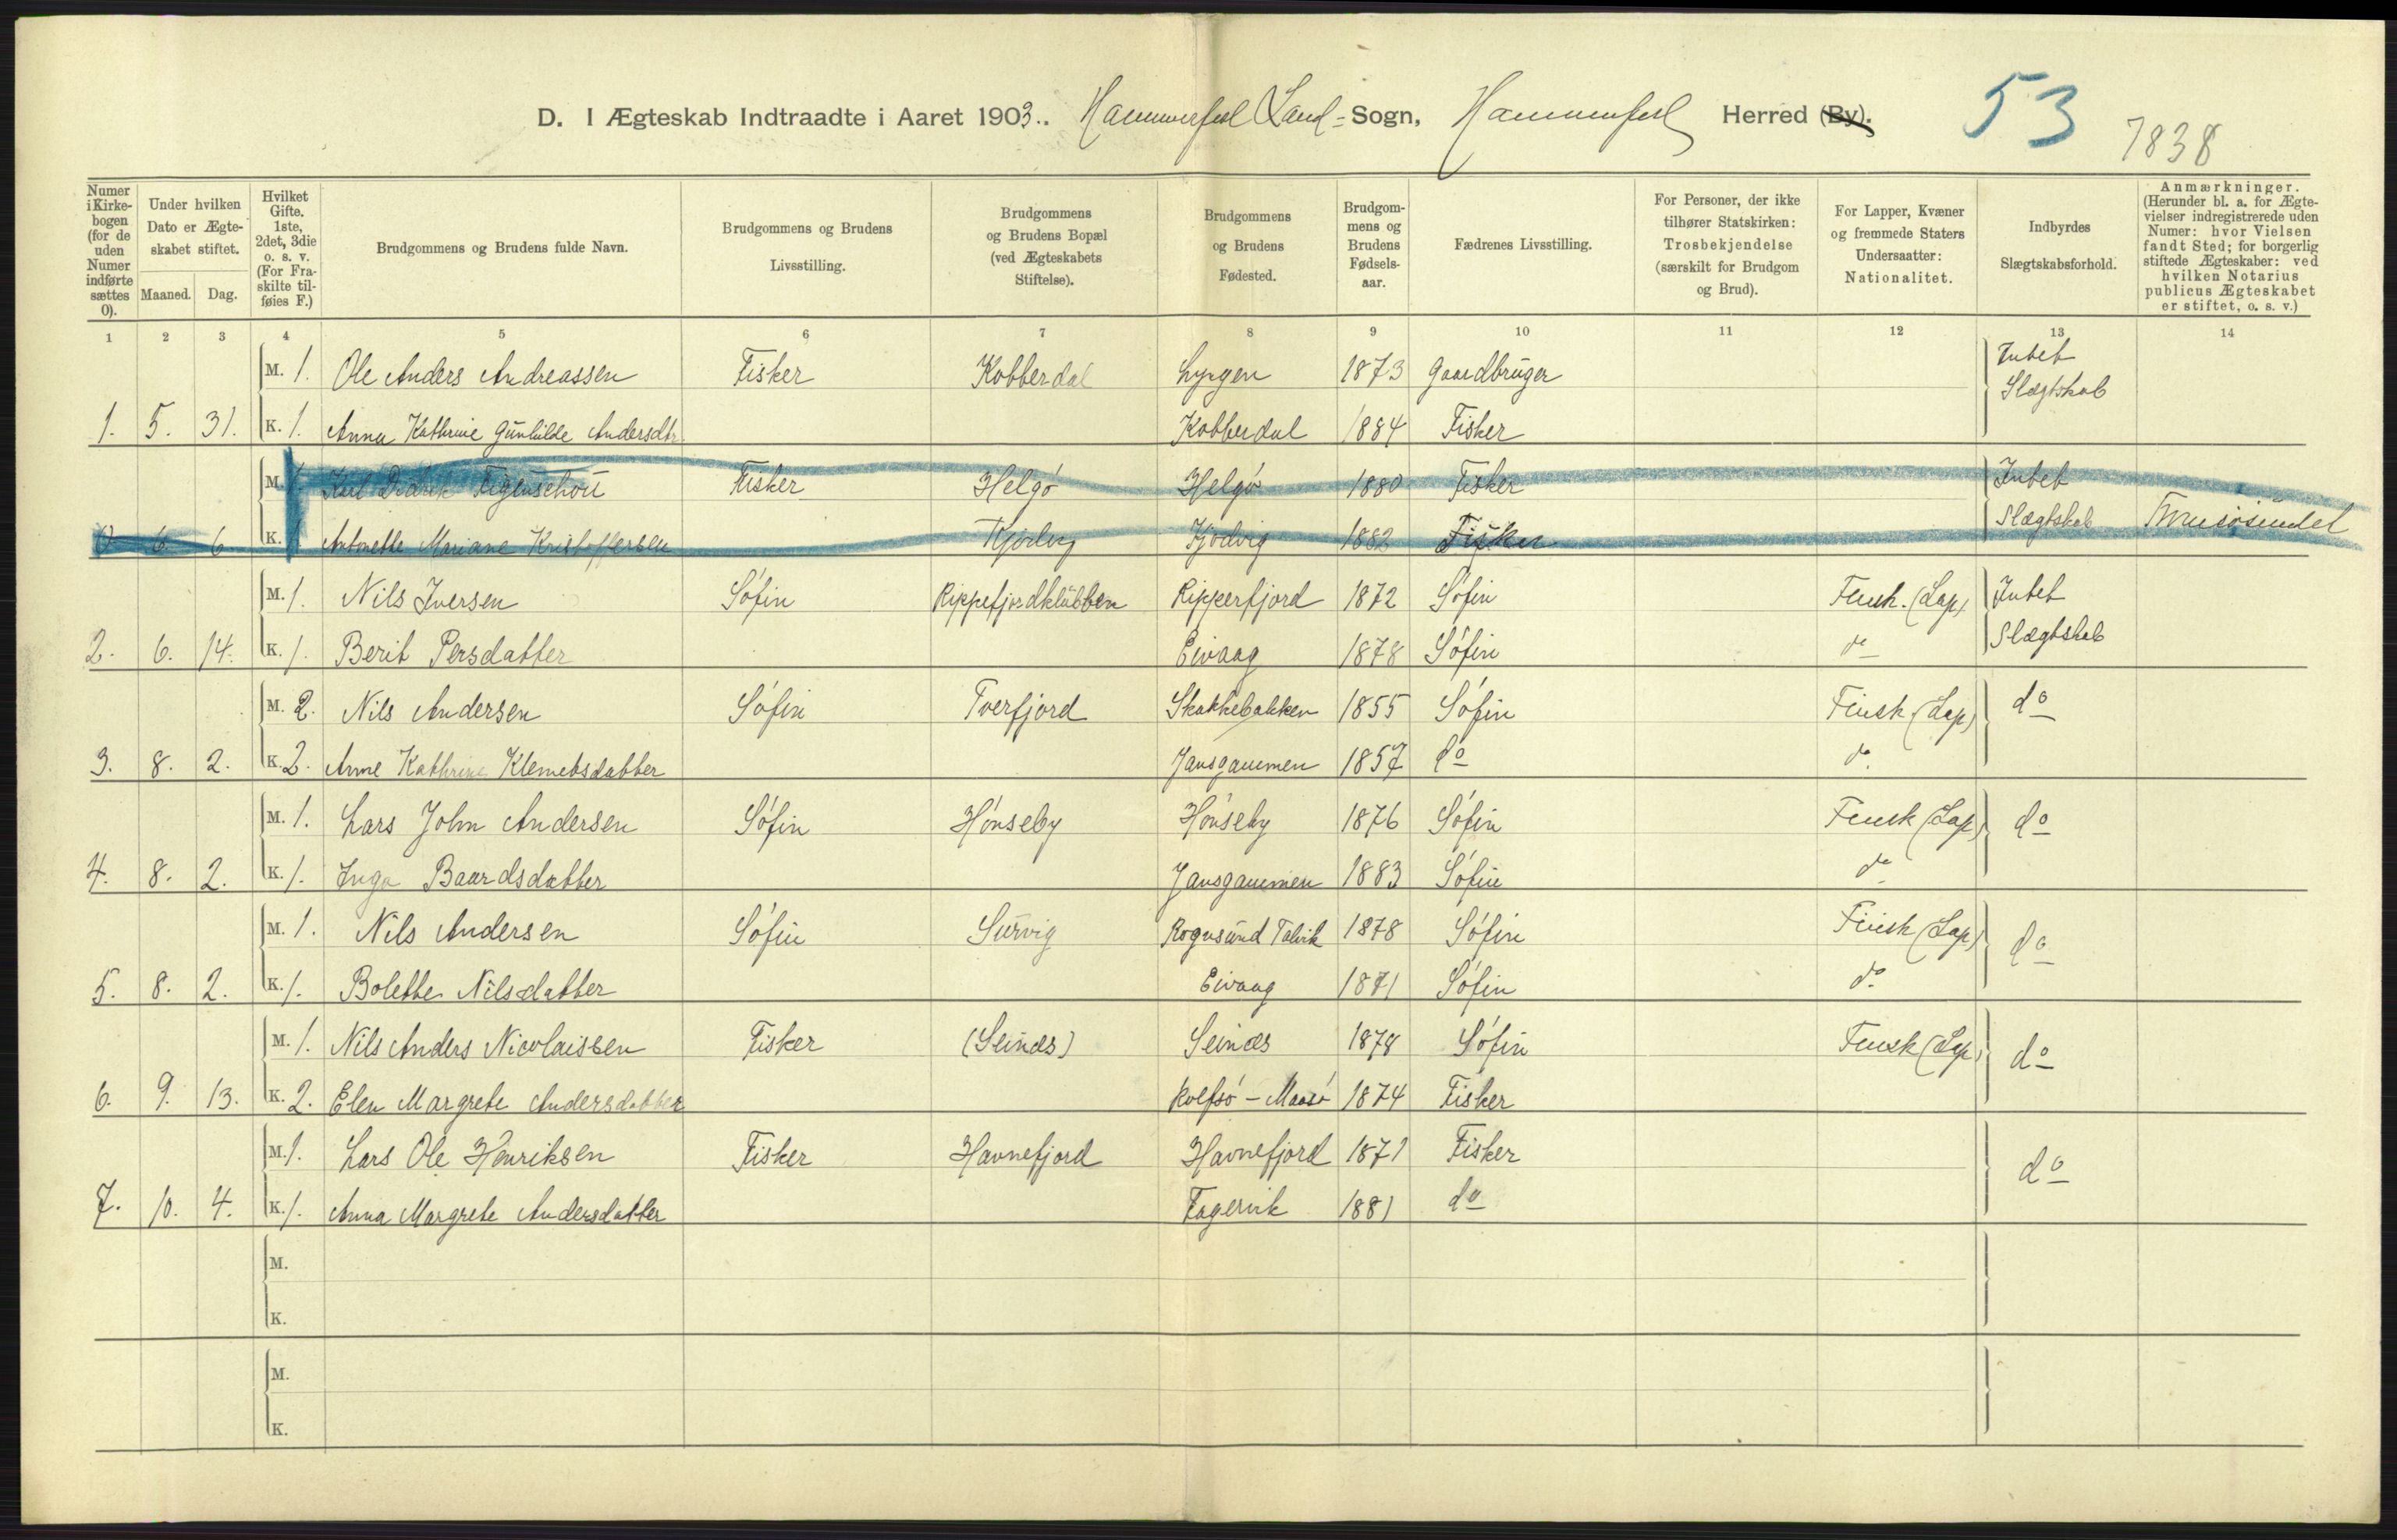 D. I Ægteskab Indtraadte i Aaret 1903.. Hammerfest Land- Sogn, Hammerfest Herred (By). 53
7838
Numer i Kirke-bogen (for de uden Numer indførte sættes 0).
Under hvilken Dato er Ægte-skabet stiftet.
Maaned. Dag.
Hvilket Gifte. 1ste, 2det, 3die o. s. v. (For Fra-skilte til-føies F.)
Brudgommens og Brudens fulde Navn.
Brudgommens og Brudens Livsstilling.
Brudgommens og Brudens Bopæl (ved Ægteskabets Stiftelse).
Brudgommens og Brudens Fødested.
Brudgom-mens og Brudens Fødsels-aar.
Fædrenes Livsstilling.
For Personer, der ikke tilhører Statskirken: Trosbekjendelse (særskilt for Brudgom og Brud).
For Lapper, Kvæner og fremmede Staters Undersaatter: Nationalitet.
Indbyrdes Slægtskabsforhold.
Anmærkninger. (Herunder bl. a. for Ægte-vielser indregistrerede uden Numer: hvor Vielsen fandt Sted; for borgerlig stiftede Ægteskaber: ved hvilken Notarius publicus Ægteskabet er stiftet, o. s. v.)
1 2 3 4 5 6 7 8 9 10 11 12 13 14
M. 1. Ole Anders Andreassen Fisker Kobberdal Lyngen 1873 Gaardbruger Intet
Slægtskab
1. 5. 31. K. 1. Anna Kathrine Gunhilde Andersdtr. Kobberdal 1884 Fisker
M. 1. Didrik Figenschou Fisker Helgø Helgø 1880 Fisker Intet
0 6 6 K. 1 Antonette Mariane Kristoffersen Kjødvig 1882 Fisker Slægtskab Tromsøsundet
M. 1. Nils Iversen Søfin Rippefjordklubben Ripperfjord 1872 Søfin Finsk. (Lap) Intet
2. 6. 14. K. 1. Berit Persdatter Eivaag 1878 Søfin do Slægtskab
M. 2. Nils Andersen Søfin Tverfjord Skakkebakken 1855 Søfin Finsk (Lap) do
3. 8. 2. K. 2. Anne Kathrine Klemetsdatter Jansgammen 1857 do do
M. 1. Lars John Andersen Søfin Hønseby Hønseby 1876 Søfin Finsk (Lap) do
4. 8. 2. K. 1. Inga Baardsdatter Jansgammen 1883 Søfin do
M. 1. Nils Andersen Søfin Survig Rognsund Talvik 1878 Søfin Finsk (Lap) do
5. 8. 2. K. 1. Bolette Nilsdatter Eivaag 1871 Søfin do
M. 1. Nils Anders Nicolaissen Fisker (Seinæs) Seinæs 1878 Søfin Finsk (Lap) do
6. 9. 13. K. 2. Elen Margrete Andersdatter Rolfsø - Maasø 1874 Fisker
M. 1. Lars Ole Henriksen Fisker Havnefjord Havnefjord 1871 Fisker do
7. 10. 4. K. 1. Anna Margrete Andersdatter Fagervik 1881 do
M.
K.
M.
K.